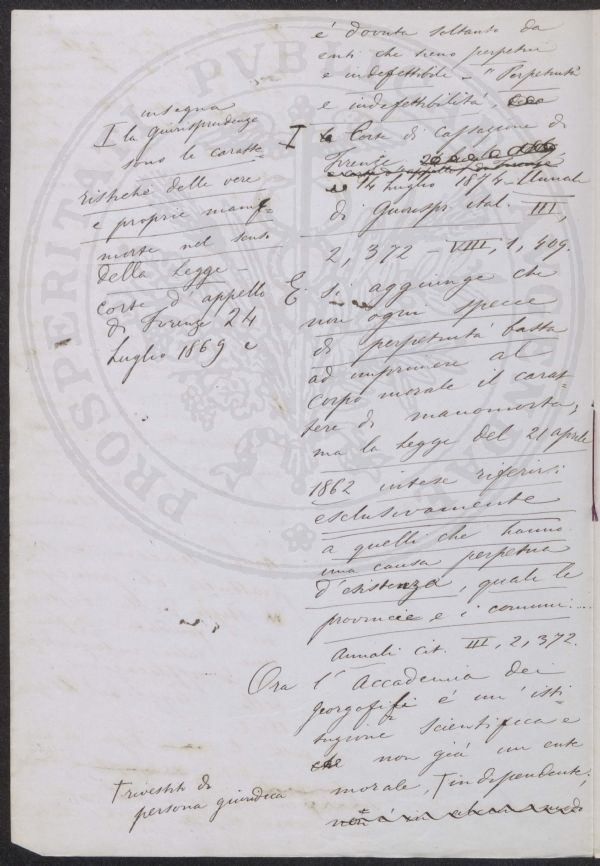 è dovuta soltanto da
enti che sieno perpetui
e indefettibili – "Perpetuità
e indefettibilità,
I la Corte di Cassazione di
Firenze,
14 Luglio 1874 – Annali
di Giurispr. ital. III,
2, 372 – VIII, 1, 409.
E si aggiunge che
non ogni specie
di perpetuità basta
ad imprimere al
corpo morale il carat-
tere di manomorta,
ma la Legge del 21 aprile
1862 intese riferirsi
esclusivamente
a quelli che hanno
una causa perpetua
d'esistenza, quali le
provincie e i comuni....
Annali cit. III, 2, 372.
Ora l'Accademia dei
georgofili è un'isti-
tuzione scientifica e
che non già un ente
morale, † independente;
insegna
I la giurisprudenza
sono le caratte-
ristiche delle vere
e proprie mani-
morte nel senso
della Legge –
Corte d'appello
di Firenze 24
Luglio 1869 e
† rivestito di
persona giuridica
PROSPERITATI PVBLICAE